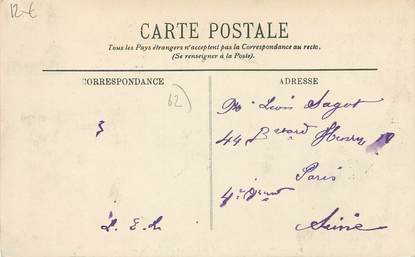 12 €
CARTE POSTALE
Tous les Pays étrangers n'acceptent pas la Correspondance au recto.
(Se renseigner à la Poste).
CORRESPONDANCE
ADRESSE
62
Mr Louis Sagot
3
44 Bard Henry IV
Paris
4e
L. E. L.
Seine